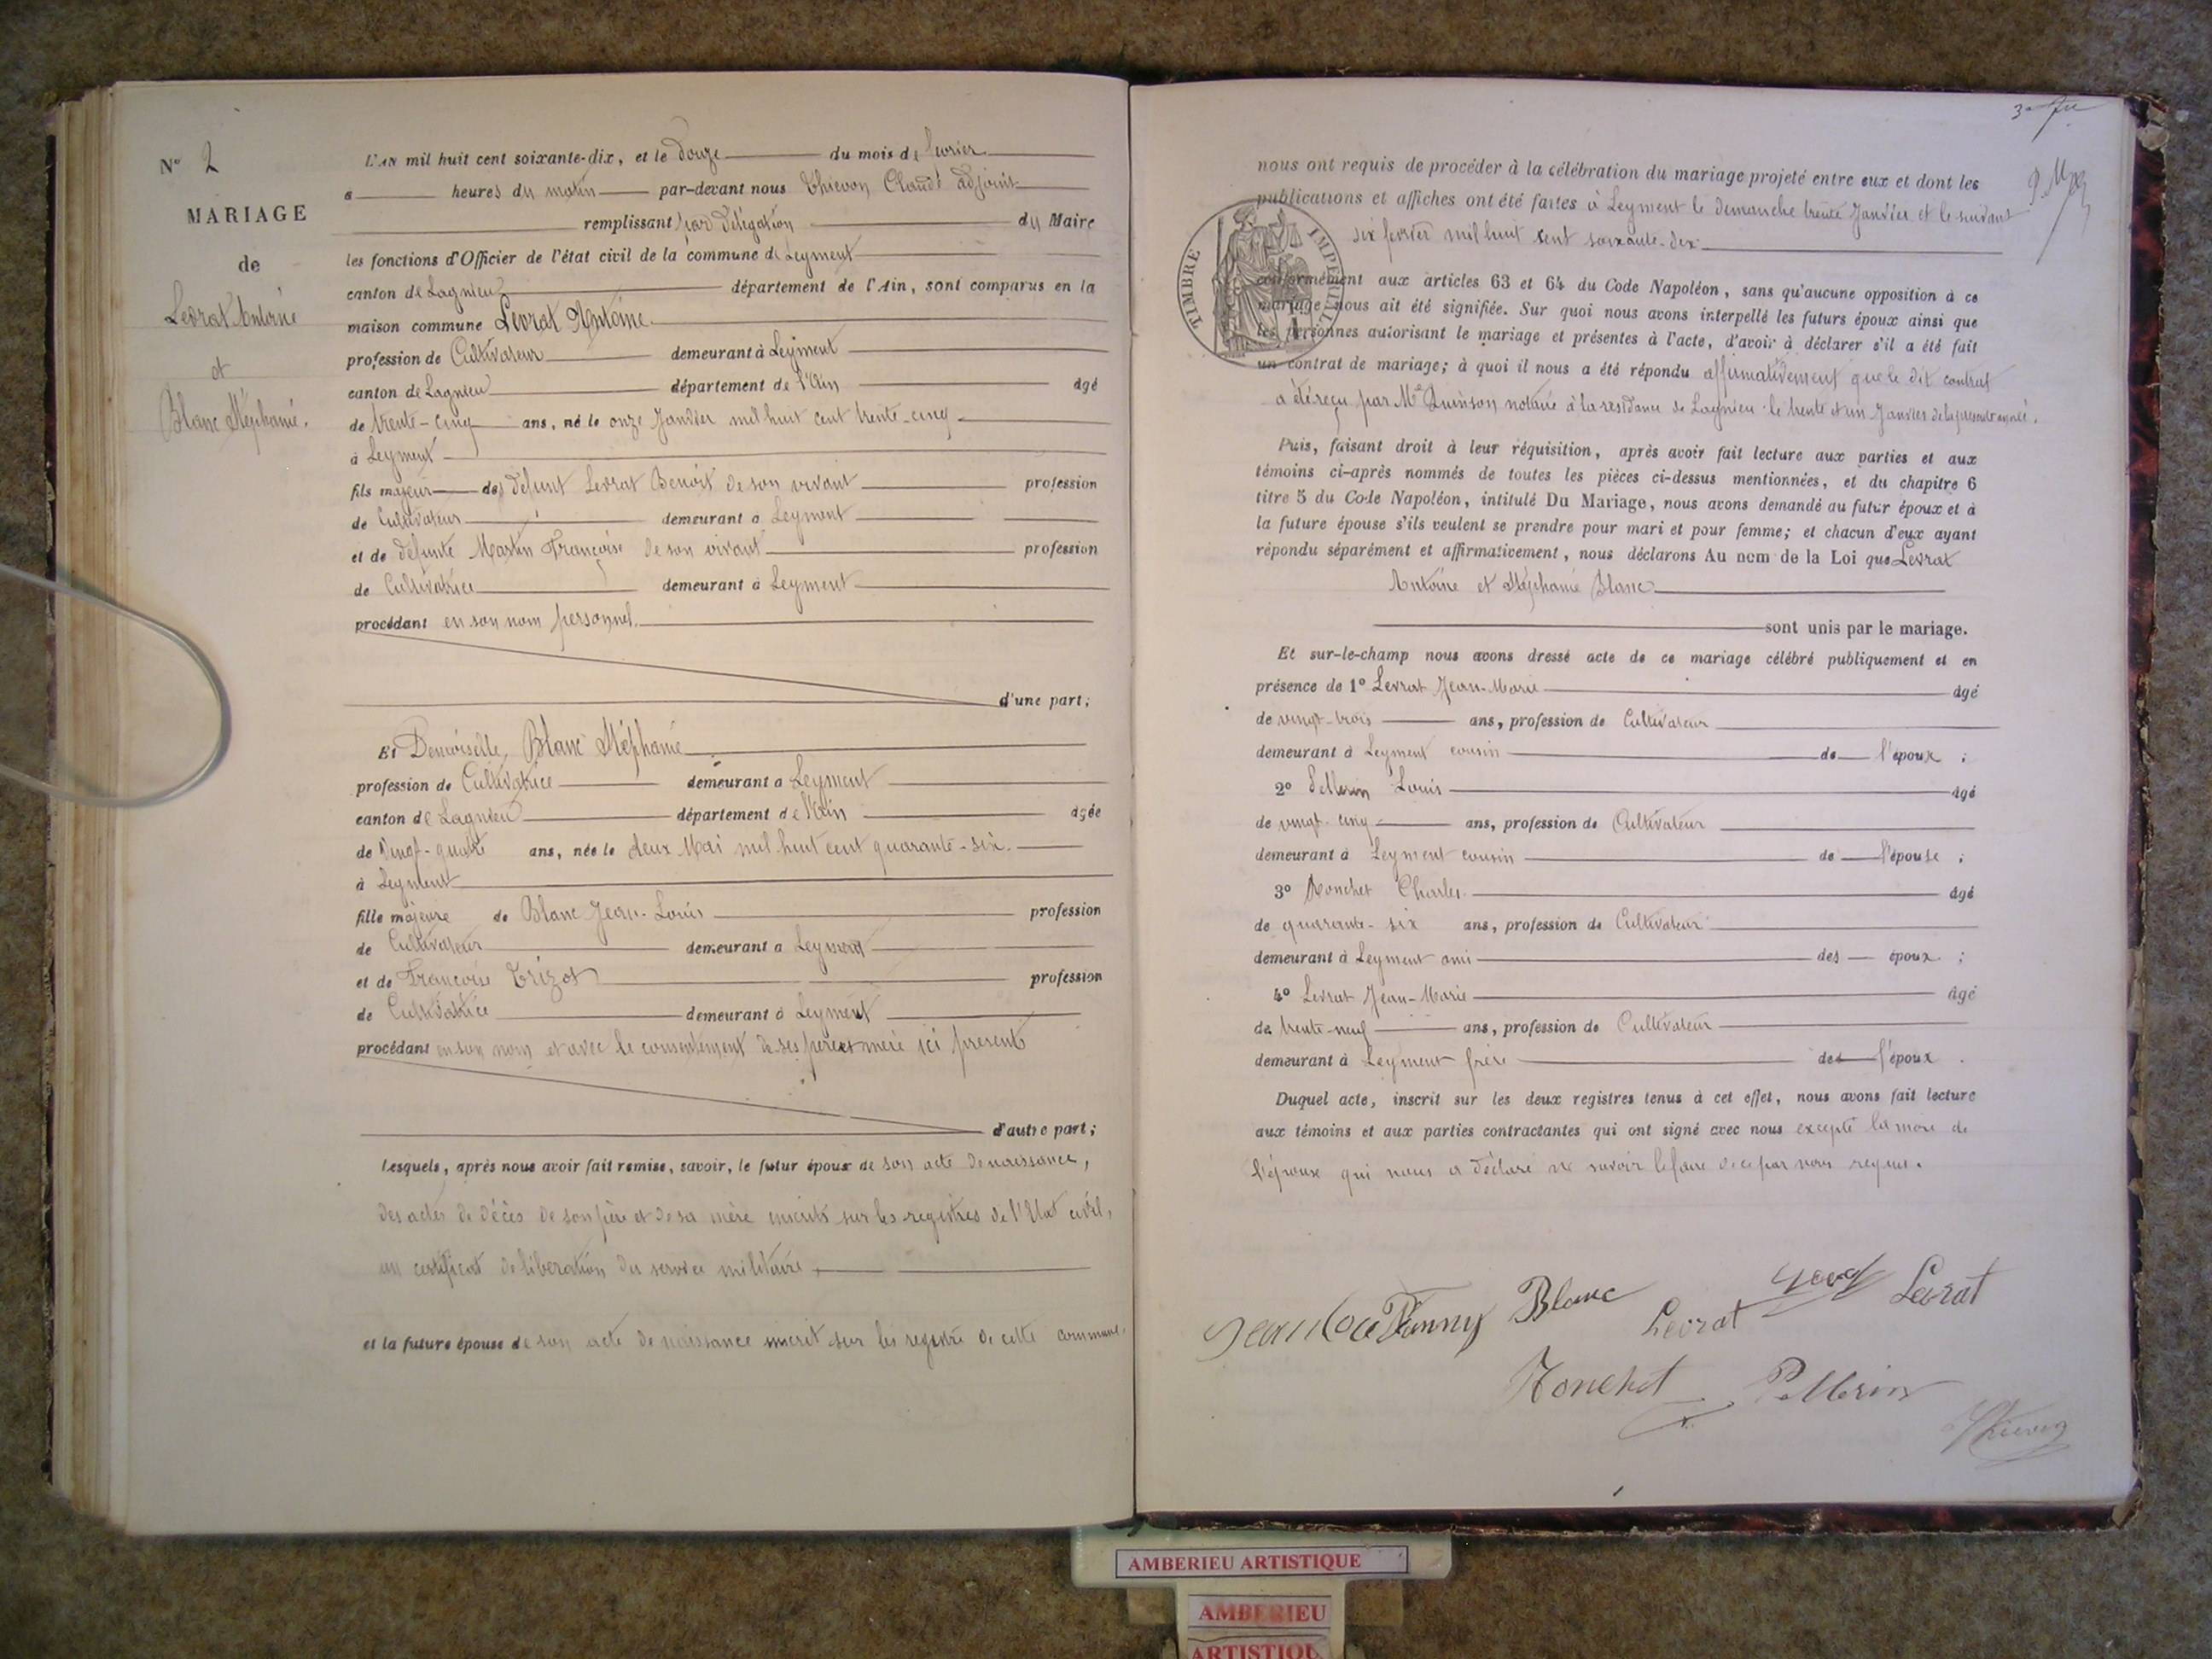 N° 2
MARIAGE
de
Levrat Antoine
et
Blanc Stéphanie.
L'AN mil huit cent soixante-dix, et le douze du mois de février
a heures du matin par-devant nous Thievon Claude adjoint
remplissant par délégation du Maire
les fonctions d'Officier de l'état civil de la commune de Leyment
canton de Lagnieu département de l'Ain, sont comparus en la
maison commune Levrat Antoine
profession de Cultivateur demeurant à Leyment
canton de Lagnieu département de l'Ain âgé
de trente-cinq ans, né le onze Janvier mil huit cent trente-cinq
à Leyment
fils majeur de défunt Levrat Benoit de son vivant profession
de Cultivateur demeurant a Leyment
et de défunte Martin Françoise de son vivant profession
de Cultivatrice demeurant à Leyment
procédant en son nom personnel.
d'une part;
Et Demoiselle, Blanc Stéphanie
profession de Cultivatrice demeurant a Leyment
canton de Lagnieu département de l'Ain âgée
de vingt-quatre ans, née le deux Mai mil huit cent quarante-six.
à Leyment
fille majeure de Blanc Jean-Louis profession
de Cultivateur demeurant a Leyment
et de Françoise Trizot profession
de Cultivatrice demeurant à Leyment
procédant en son nom et avec le consentement de ses père et mère ici présents
d'autre part;
Lesquels, après nous avoir fait remise, savoir, le futur époux de son acte de naissance,
des actes de décès de son père et de sa mère inscrits sur les registres de l'Etat civil,
un certificat de libération du service militaire,
et la future épouse de son acte de naissance inscrit sur les registre de cette commune.
nous ont requis de procéder à la célébration du mariage projeté entre eux et dont les
publications et affiches ont été faites à Leyment le dimanche trente Janvier et le suivant
six février mil huit cent soixante-dix
TIMBRE IMPERIAL
conformément aux articles 63 et 64 du Code Napoléon, sans qu'aucune opposition à ce
mariage nous ait été signifiée. Sur quoi nous avons interpellé les futurs époux ainsi que
les personnes autorisant le mariage et présentes à l'acte, d'avoir à déclarer s'il a été fait
un contrat de mariage; à quoi il nous a été répondu affirmativement que le dit contrat
a été reçu par Me Quinson notaire à la residance de Lagnieu le trente et un Janvier de la présente année.
Puis, faisant droit à leur réquisition, après avoir fait lecture aux parties et aux
témoins ci-après nommés de toutes les pièces ci-dessus mentionnées, et du chapitre 6
titre 5 du Code Napoléon, intitulé Du Mariage, nous avons demandé au futur époux et à
la future épouse s'ils veulent se prendre pour mari et pour femme; et chacun d'eux ayant
répondu séparément et affirmativement, nous déclarons Au nom de la Loi que Levrat
Antoine et Stéphanie Blanc
sont unis par le mariage.
Et sur-le-champ nous avons dressé acte de ce mariage célébré publiquement et en
présence de 1° Levrat Jean-Marie âgé
de vingt-trois ans, profession de Cultivateur
demeurant à Leyment cousin de l'époux ;
2° Pellerin Louis âgé
de vingt-cinq ans, profession de Cultivateur
demeurant à Leyment cousin de l'épouse ;
3° Ronchet Charles. âgé
de quarante-six ans, profession de Cultivateur
demeurant à Leyment ami des époux ;
4° Levrat Jean-Marie âgé
de trente-neuf ans, profession de Cultivateur
demeurant à Leyment frère de l'époux .
Duquel acte, inscrit sur les deux registres tenus à cet effet, nous avons fait lecture
aux témoins et aux parties contractantes qui ont signé avec nous excepté la mère de
l'épouse qui nous a déclaré ne savoir le faire de ce par nous requis.
Fanny Blanc Levrat Levrat
Ronchet Pellerin
Thievon
AMBERIEU ARTISTIQUE
AMBERIEU
ARTISTIQU